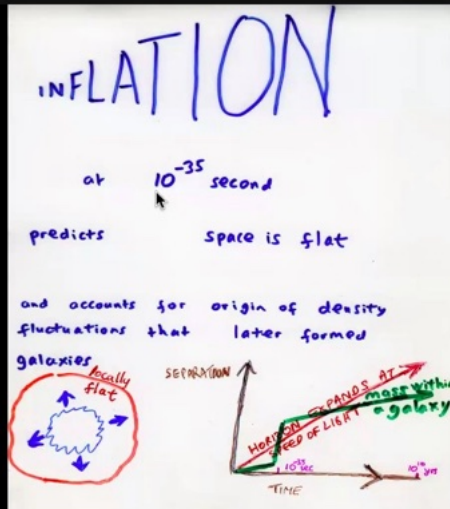 INFLATION
at 10⁻³⁵ second
predicts space is flat
and accounts for origin of density
fluctuations that later formed
galaxies
locally
flat
SEPARATION
HORIZON EXPANDS AT
SPEED OF LIGHT
mass within
a galaxy
10⁻³⁵ sec
10¹⁰ yrs
TIME